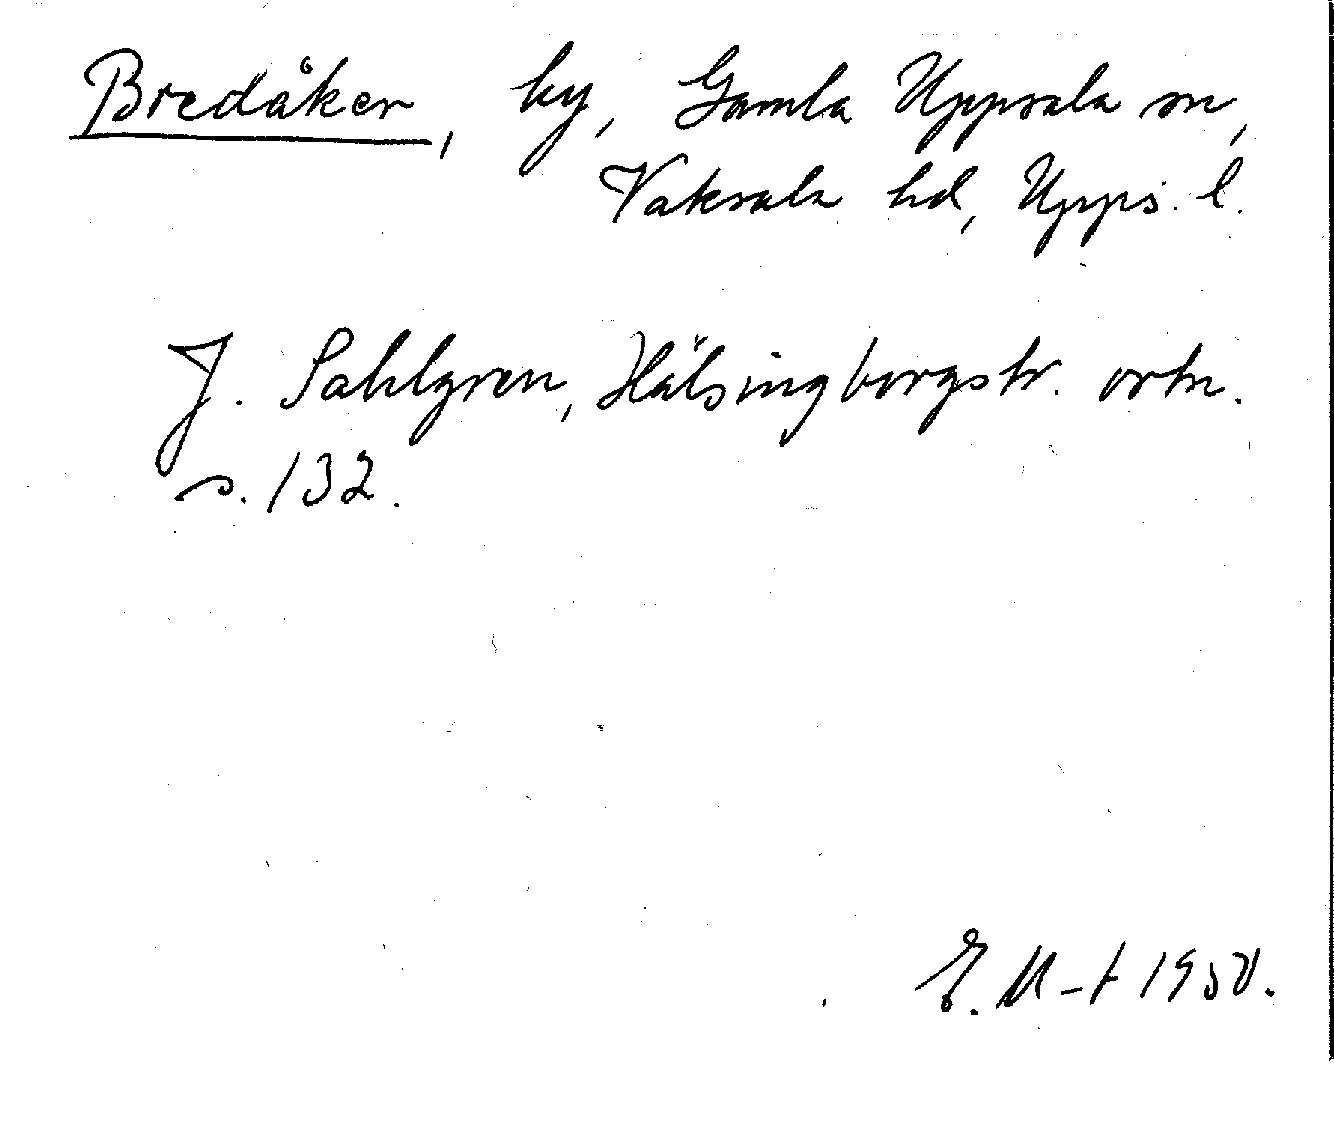 Bredåker, by, Gamla Uppsala sn,
Vaksala hd, Upps. l.
J. Sahlgren, Hälsingborgstr. ortn.
s. 132.
E. M-t 1950.